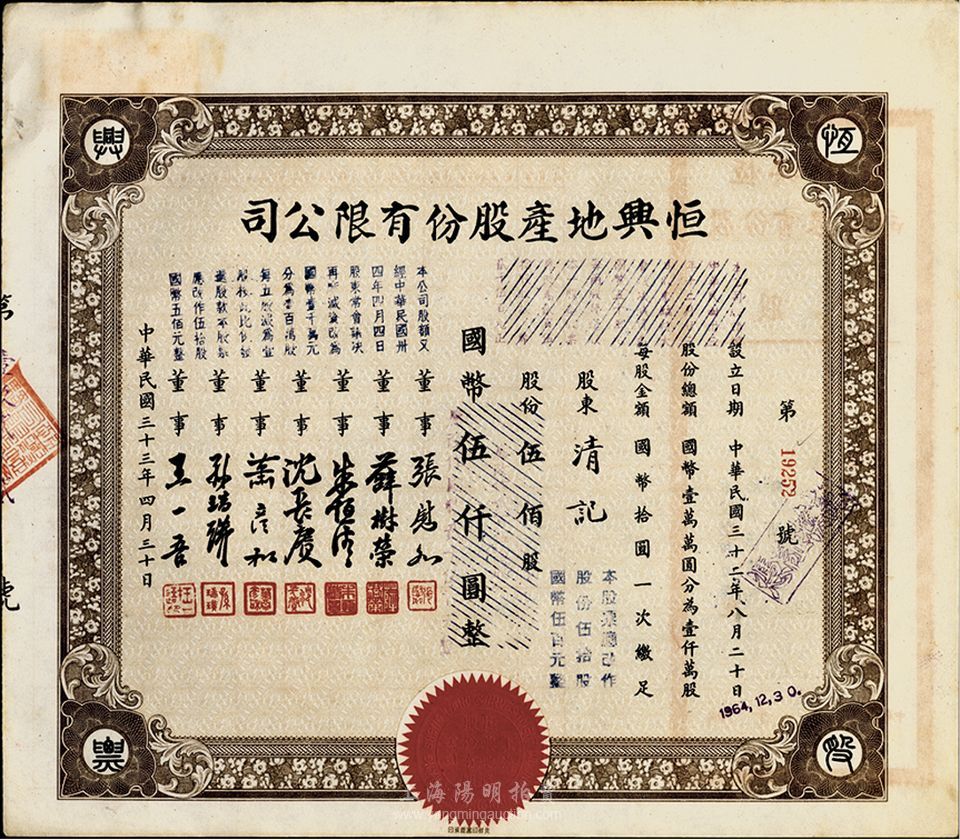 恒興地產股份有限公司
恆
興
股
票
第 19252 號
設立日期 中華民國三十二年八月二十日
股份總額 國幣壹萬萬圓分為壹仟萬股
每股金額 國幣拾圓一次繳足
股東 清記
股份 伍佰股
國幣伍仟圓整
本股票應改作
股份伍拾股
國幣伍百元整
本公司股額又
經中華民國卅
四年四月四日
股東常會議決
再
國幣壹千萬元
分為壹百萬股
應改作伍拾股
國幣五佰元整
董事 張慰如
董事 薛樹榮
董事
董事 沈長賡
董事
董事 孫瑞璜
董事 王一吾
中華民國三十三年四月三十日
1964,12,30.
第
號
上海陽明拍賣
www.yangmingauction.com